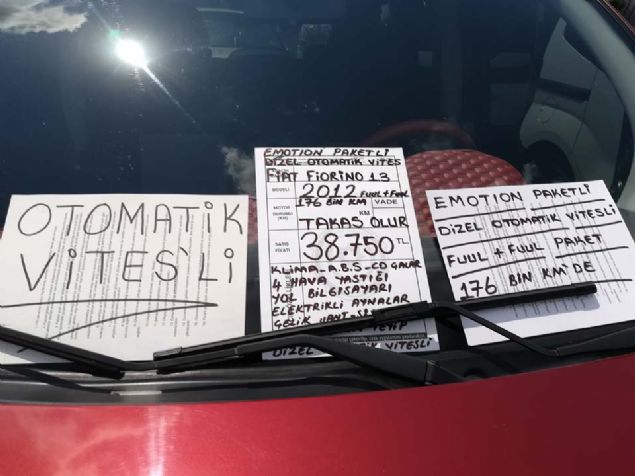 OTOMATiK
ViTES'Li
EMOTiON PAKETLi
DiZEL OTOMATiK VITES
FiAT FiORiNO 1.3
MODELİ 2012 FUUL+FUUL
176 BiN KM VADE
KM
TAKAS OLUR
SATIŞ
FİYATI 38.750 TL
KLiMA-A.B.S-CD ÇALAR
4 HAVA YASTIĞI
YOL BiLGiSAYARI
ELEKTRiKLi AYNALAR
ÇELiK JANT
DiZEL OTOMATiK ViTESLi
EMOTiON PAKETLi
DiZEL OTOMATiK ViTESLi
FUUL + FUUL PAKET
176 BiN KM'DE